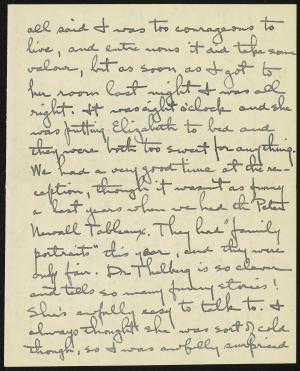 all said I was too courageous to
live, and entre nous it did take some
valour, but as soon as I got to
her room last night I was all
right. It was eight o'clock and she
was putting Elizabeth to bed and
they were both too sweet for anything.
We had a very good time at the re-
ception, though it wasn't as funny
as last years when we had the Peter
Newell Tableaux. They had "family
portraits" this year, and they were
only fair. Dr Thelberg is so clever
and tells so many funny stories!
She's awfully easy to talk to. I
always thought she was sort of cold
though, so I was awfully surprised